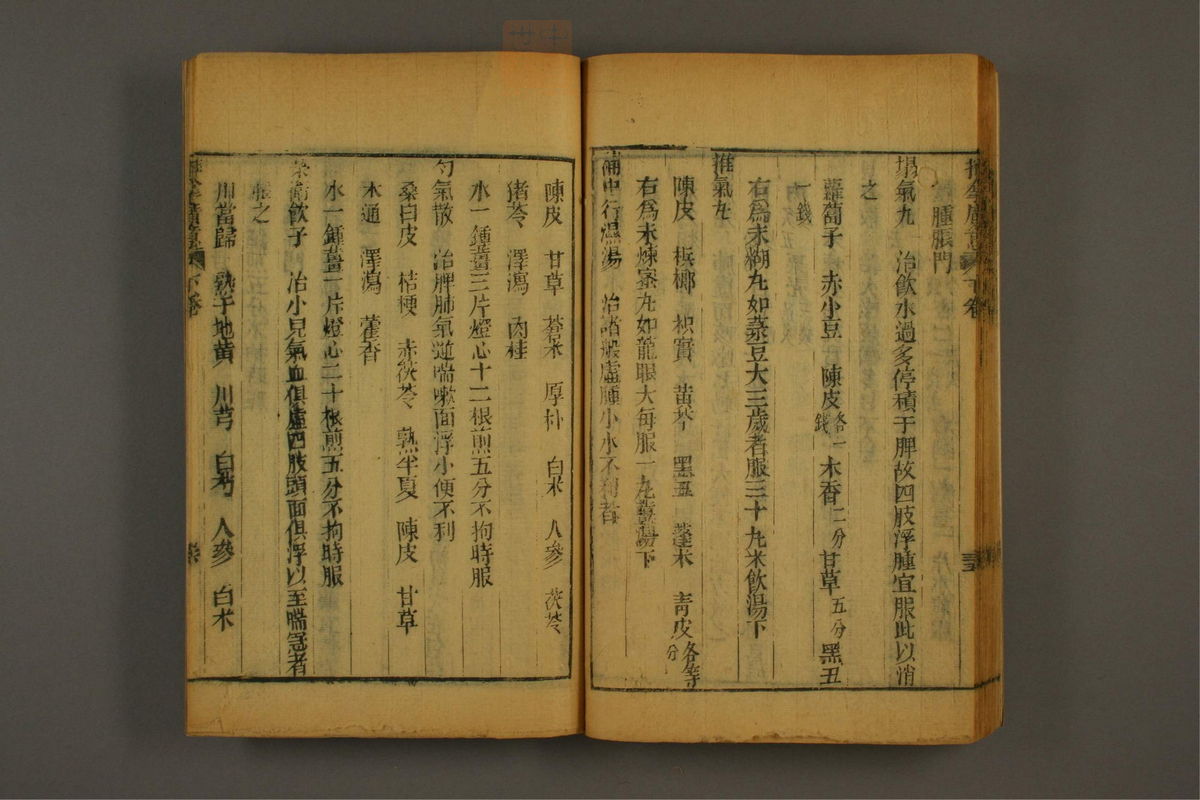 腫脹門
塌氣丸　治飲水過多停積于脾故四肢浮腫宜服此以消
之
蘿蔔子　赤小豆　陳皮各一錢　木香二分　甘草五分　黑丑
一錢
右爲末糊丸如菉豆大三歲者服三十丸米飲湯下
推氣丸
陳皮　檳榔　枳實　黃芩　黑丑　蓬朮　青皮各等分
右爲末煉蜜丸如龍眼大每服一丸薑湯下
補中行濕湯　治諸般虛腫小水不利者
陳皮　甘草　蒼朮　厚朴　白朮　人參　茯苓
猪苓　澤瀉　肉桂
水一鍾薑三片燈心十二根煎五分不拘時服
勻氣散　治脾肺氣逆喘嗽面浮小便不利
桑白皮　桔梗　赤茯苓　熟半夏　陳皮　甘草
木通　澤瀉　藿香
水一鍾薑一片燈心二十根煎五分不拘時服
榮衛飲子　治小兒氣血俱虛四肢頭面俱浮以至喘急者
服之
川當歸　熟子地黃　川芎　白芍　人參　白朮